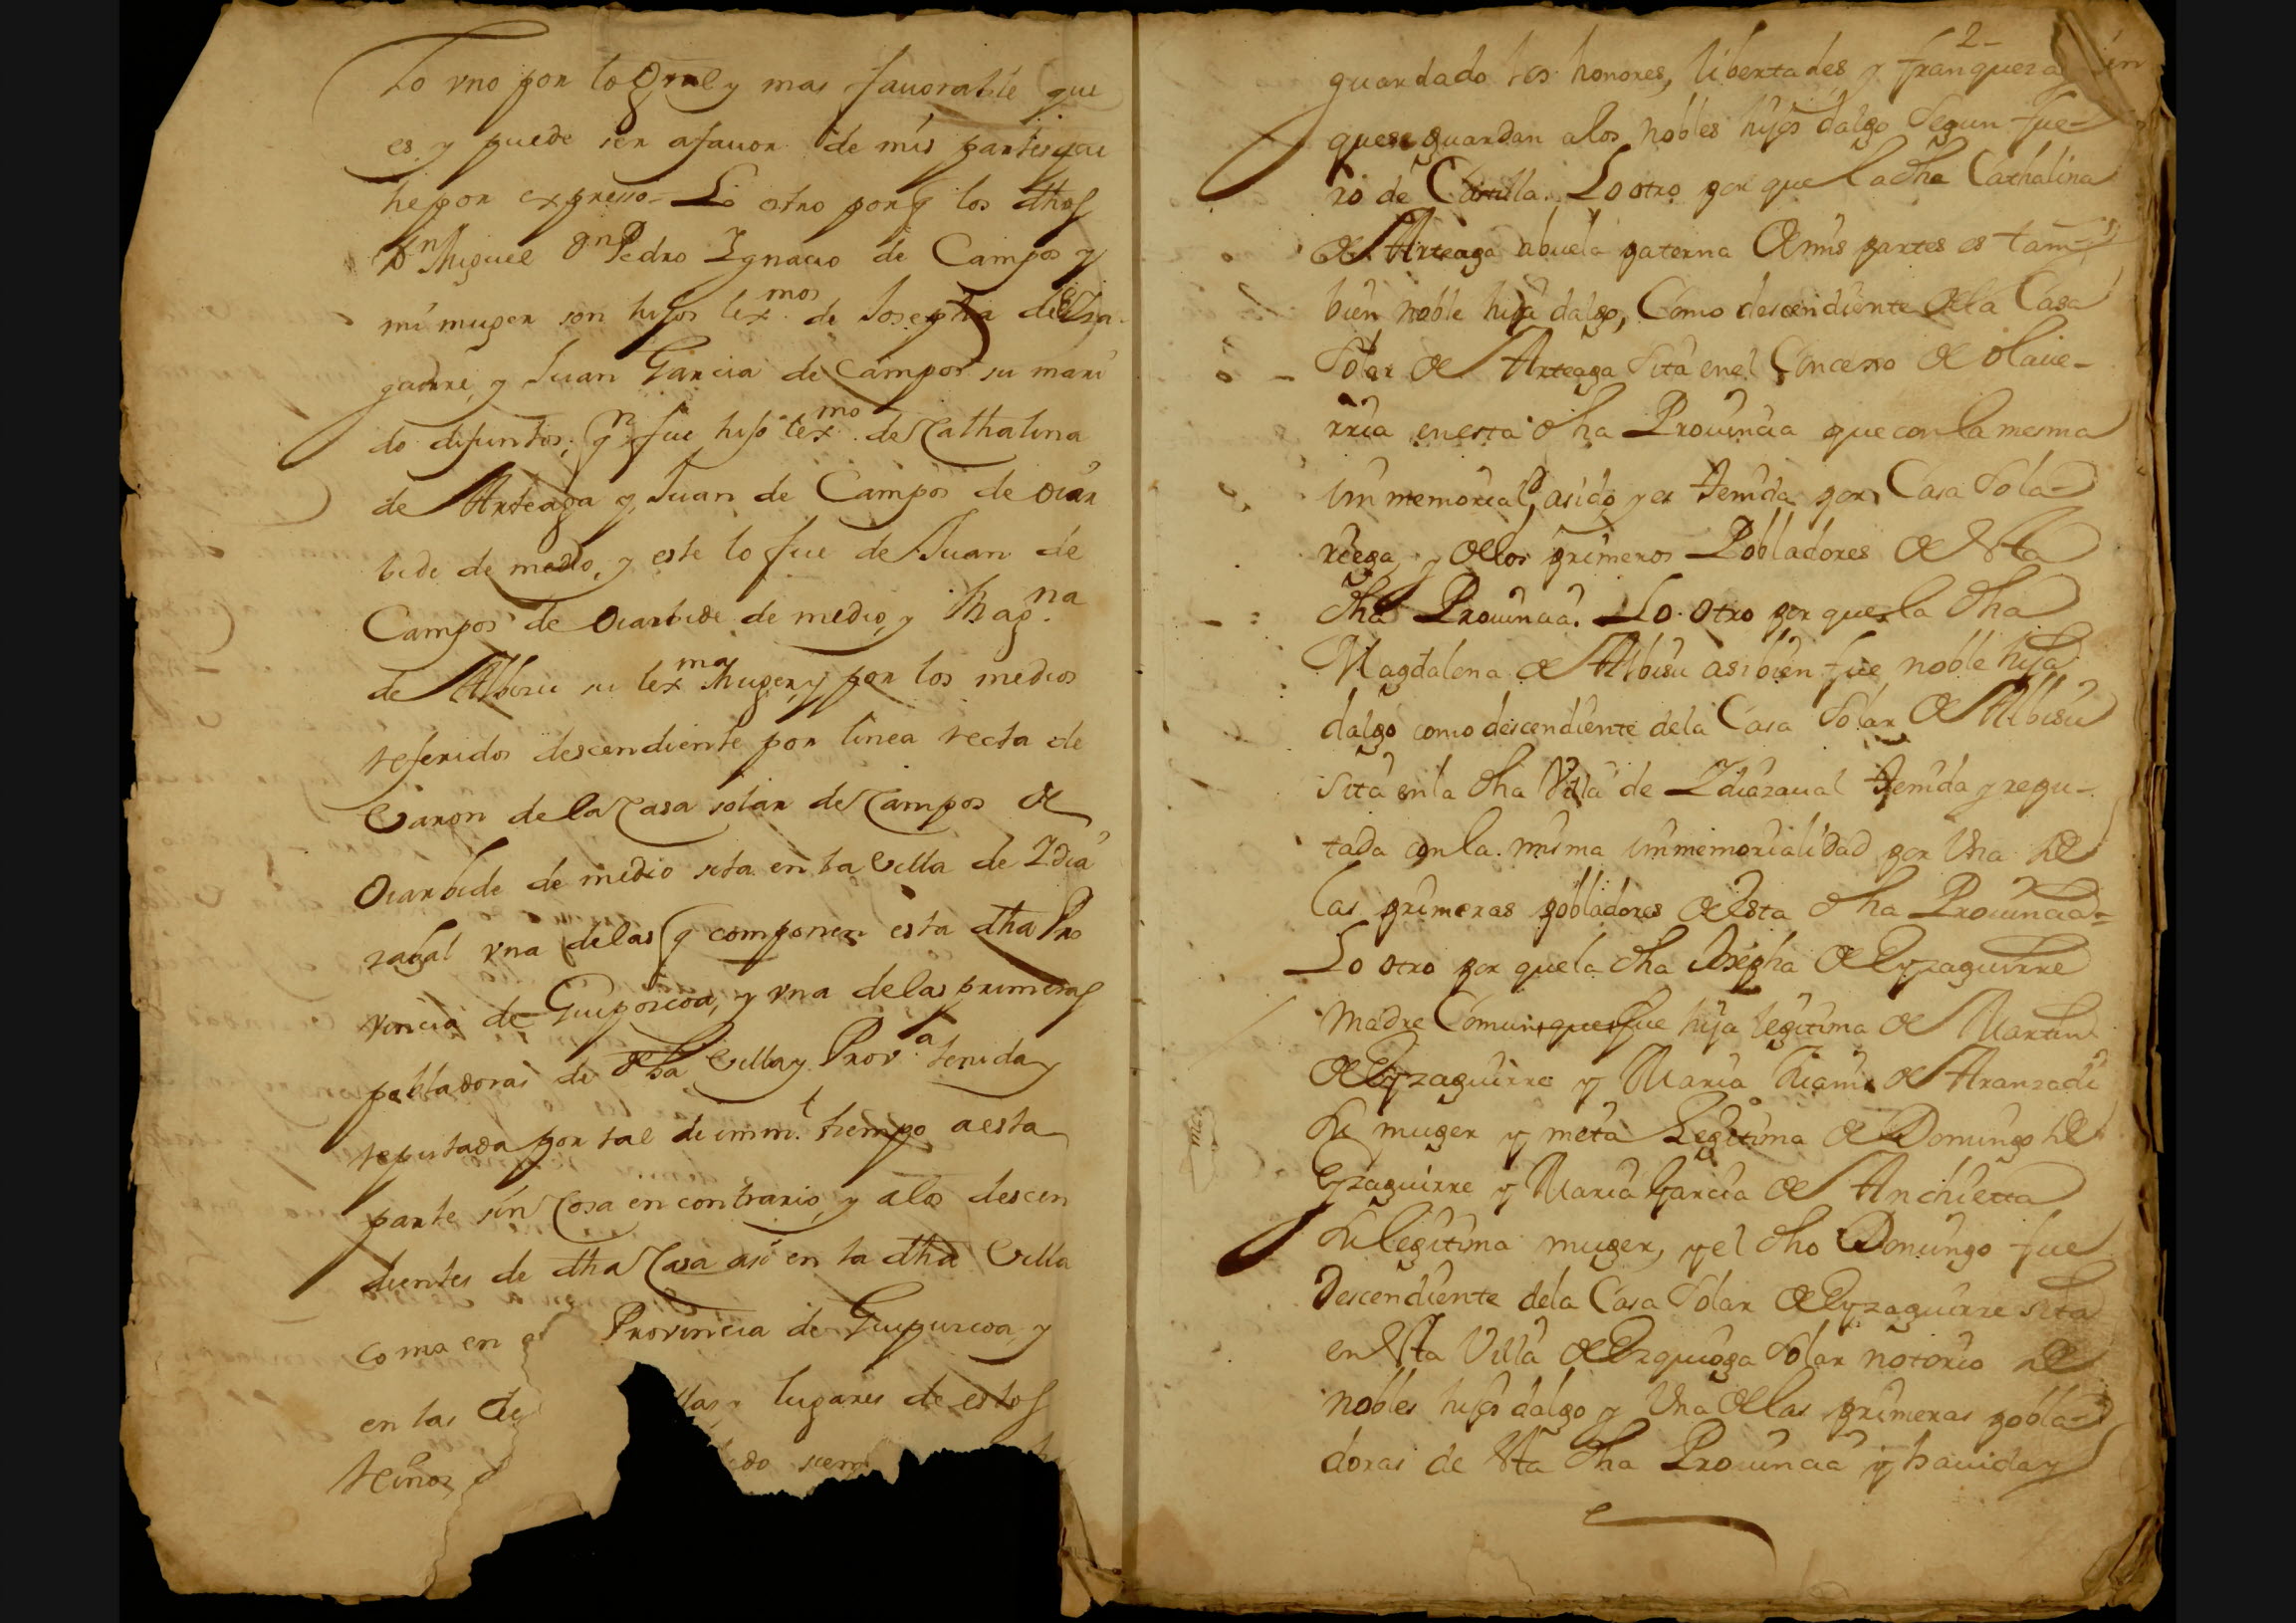 Lo vno por lo Gral y mas fauorable que
es y puede ser a fauor de mis partes que
he por expreso Lo otro porq los dhos
Dn Miguel Dn Pedro Ygnacio de Campos y
mi muger son hijos lexmos de Josepha de Eiza
guirre, y Juan Garcia de Campos su mari
do difuntos; qn fue hijo lexmo de Cathalina
de Arteaga y Juan de Campos de oiar
bide de medio, y este lo fue de Juan de
Campos de oiarbide de medio, y Magna
de Albisu su lexma Muger, y por los medios
referidos descendiente por linea recta de
Varon de la Casa solar de Campos de
Oiarbide de medio sita en la Villa de Ydia
zabal vna de las q componen esta dha Pro
vincia de Guipuscoa, y vna de las primeras
pobladoras de dha Villa y Prova tenida y
reputada por tal de immt tiempo a esta
parte sin Cosa en contrario, y a los descen
dientes de dha Casa asi en la dha Villa
como en Provincia de Guipuscoa, y
en las lugares de estos
Reinos
2
guardado los honores, libertades y franquezas
que se guardan a los nobles hijos dalgo Segun fue-
ro de Castilla. Lo otro por que la dha Cathalina
de Arteaga abuela paterna de mis partes es tam-
bien noble hija dalgo, Como descendiente de la Casa
Solar de Arteaga Sita en el Concexo de olaue-
rria en esta dha Prouincia que con la mesma
immemorial, a sido y es Tenida por Casa Sola-
riega, y de los primeros Pobladores de esta
dha Prouincia. Lo otro por que la dha
Magdalena de Albisu asi bien fue noble hija
dalgo como descendiente de la Casa Solar de Albisu
Sita en la dha Villa de Ydiazaual Tenida y repu-
tada con la misma immemorialidad por Vna de
las primeras pobladores de esta dha Prouincia=
Lo otro por que la dha Josepha de Eyzaguirre
Madre Comun que fue hija legitima de Martin
de Eyzaguirre y Maria de Aranzadi
Su muger y nieta Legitima de Domingo de
Eyzaguirre y Maria Garcia de Anchieta
Su legitima muger, y el dho Domingo fue
Descendiente de la Casa Solar de Eyzaguirre sita
en esta Villa de Ezquioga Solar notorio de
nobles hijos dalgo y Vna de las primeras pobla-
doras de esta dha Prouincia y hauida y